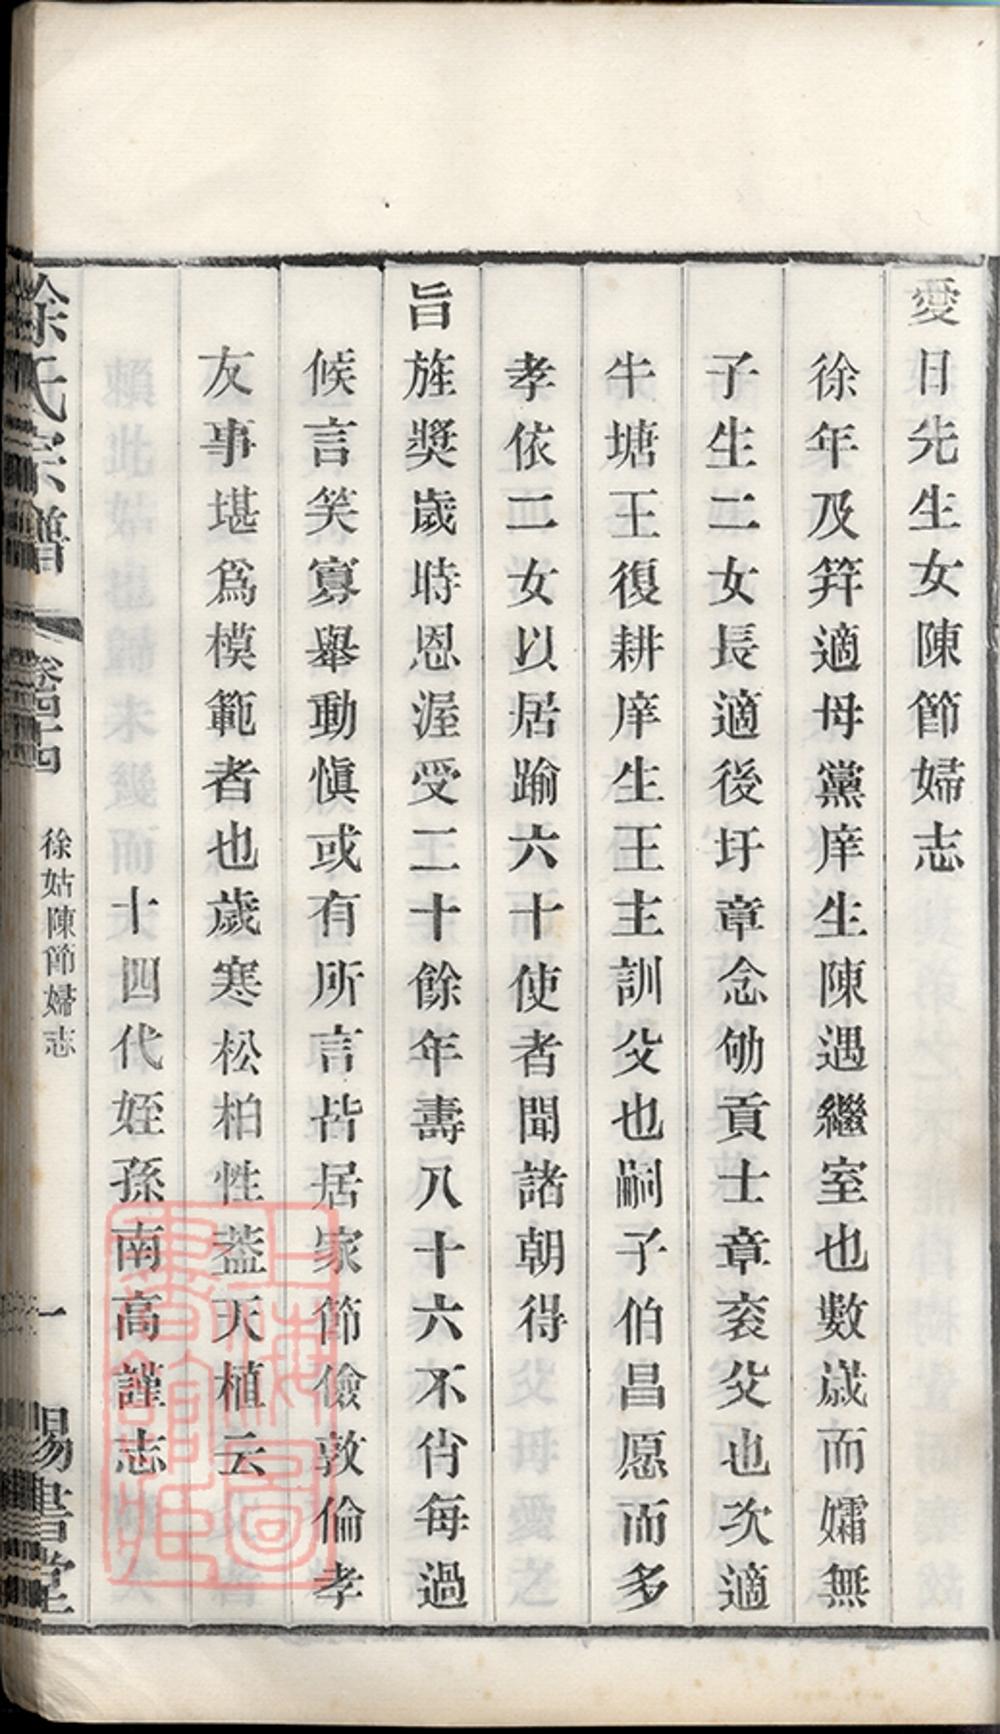 愛日先生女陳節婦志
徐年及笄適母黨庠生陳遇繼室也數歲而孀無
子生二女長適後圩章念劬貢士章衮父也次適
牛塘王復耕庠生王主訓父也嗣子伯昌愿而多
孝依二女以居踰六十使者聞諸朝得
旨旌獎歲時恩渥受二十餘年壽八十六不肖每過
候言笑寡舉動慎或有所言皆居家節儉敦倫孝
友事堪爲模範者也歲寒松柏性葢天植云
十四代姪孫南高謹志
徐氏宗譜
卷四十四
徐姑陳節婦志
一
賜書堂
上海圖書館藏